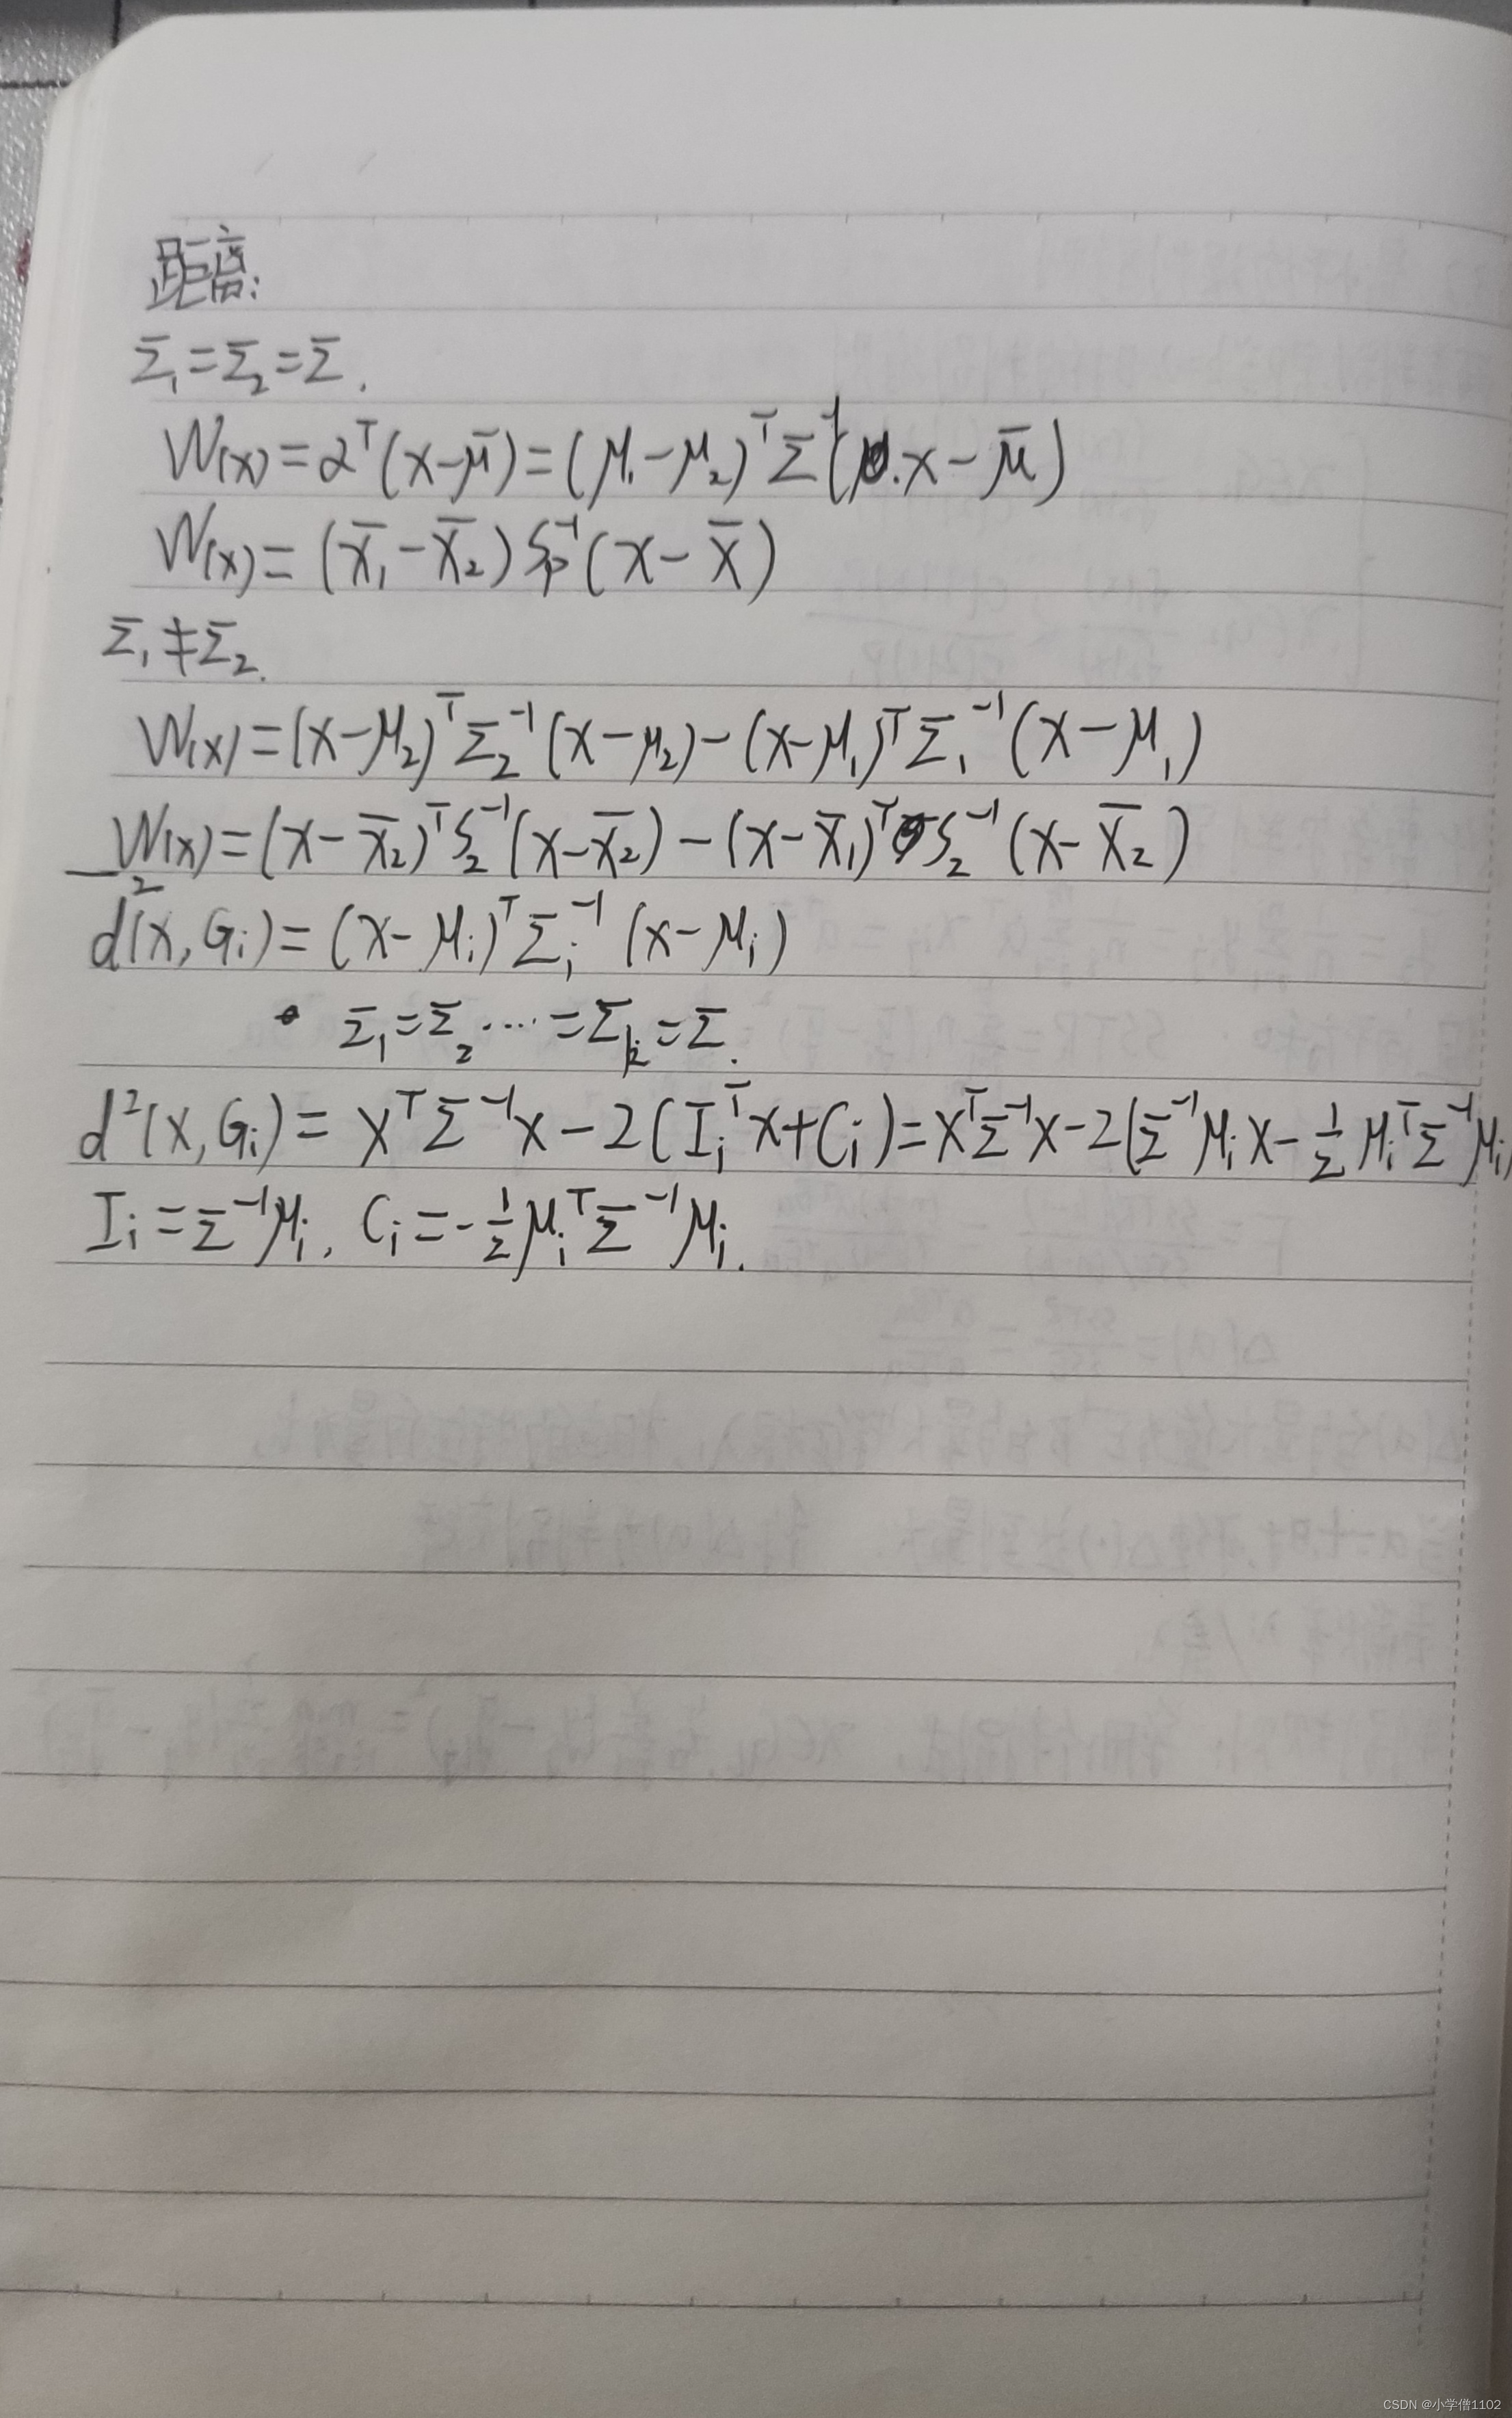 距离:
Σ₁=Σ₂=Σ.
W(x)=α^T(x-μ̄)=(μ₁-μ₂)^T Σ^-1(x-μ̄)
W(x)=(x̄₁-x̄₂)Sp^-1(x-x̄)
Σ₁≠Σ₂.
W(x)=(x-μ₂)^T Σ₂^-1(x-μ₂)-(x-μ₁)^T Σ₁^-1(x-μ₁)
W(x)=(x-x̄₂)^T S₂^-1(x-x̄₂)-(x-x̄₁)^T S₂^-1(x-x̄₂)
d²(x,Gi)=(x-μi)^T Σi^-1(x-μi)
Σ₁=Σ₂....=Σk=Σ.
d²(x,Gi)=x^T Σ^-1 x-2(Ii^T x+Ci)=x^T Σ^-1 x-2(Σ^-1 μi x-1/2 μi^T Σ^-1 μi)
Ii=Σ^-1 μi, Ci=-1/2 μi^T Σ^-1 μi.
CSDN @小学僧1102